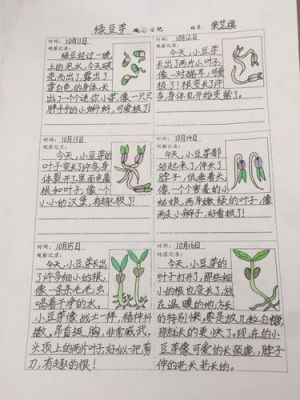 绿豆芽 观察日记 姓名:
时间:10月11日
观察记录:
绿豆经过一晚
上的泡水,今天破
壳而出了,露出了
雪白的身体,长
出了一个迷你小芽,像一只只
胖乎乎的小蝌蚪,可爱极了!
时间:10月12日
观察记录:
今天,小豆芽
长出了两片小叶子,
像一对翅膀,可爱
极了!根变长了许
多,身体也开始变紫了。
时间:10月13日
观察记录:
今天,小豆芽的
叶子变大了许多,身
体裂开了,里面包着
根和叶子,像一个
小小的汉堡,有趣极了!
时间:10月14日
观察记录:
今天,小豆芽都
站起来了,伸长了
脖子,低垂着头,
像一个个害羞的小
姑娘,两片嫩绿的叶子,像
两支小辫子,好看极了!
时间:10月15日
观察记录:
今天,小豆芽长出
了许多细小的根,
像一条条毛毛虫
喝着干净的水,
小豆芽像战士一样,精神抖
擞,昂首挺胸,非常威武,
头顶上的两片叶子好似一把剪
刀,有趣的很!
时间:10月16日
观察记录:
今天,小豆芽的
叶子打开了,那些细
小的根也变长了,放
在温暖的地方长
的特别快,要是放几粒白糖,
那就长的更快了。现在的小
豆芽像可爱的长颈鹿,脖子
伸的老长老长的。